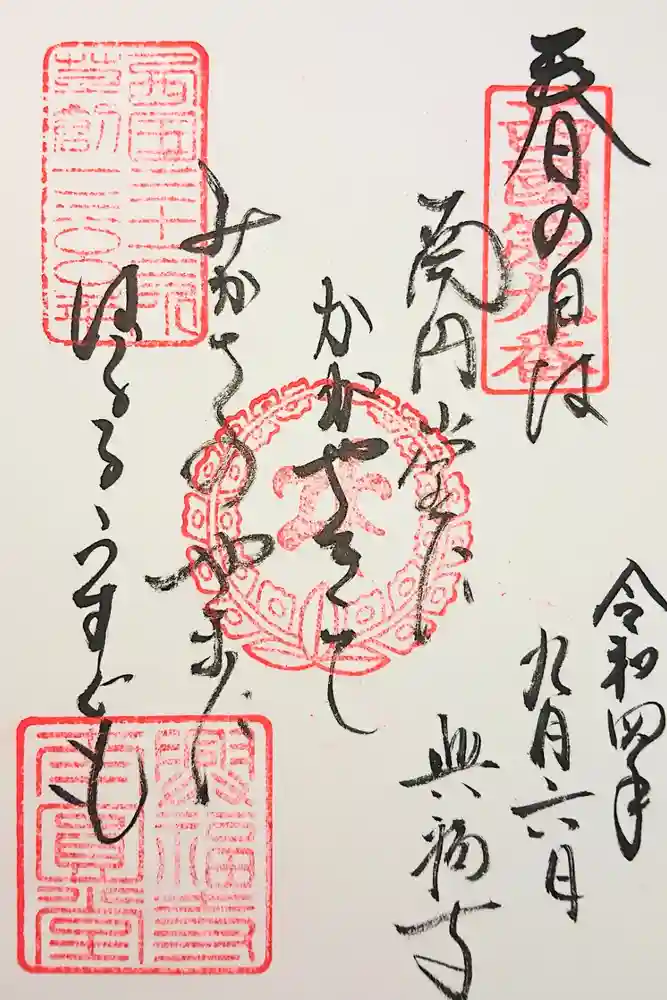 春の日は
南円堂に
かがやきて
みかさのやまに
はるるうすぐも
令和四年
九月六日
興福寺
西國第九番
西国三十三所
草創一三〇〇年
興福寺
南圓堂